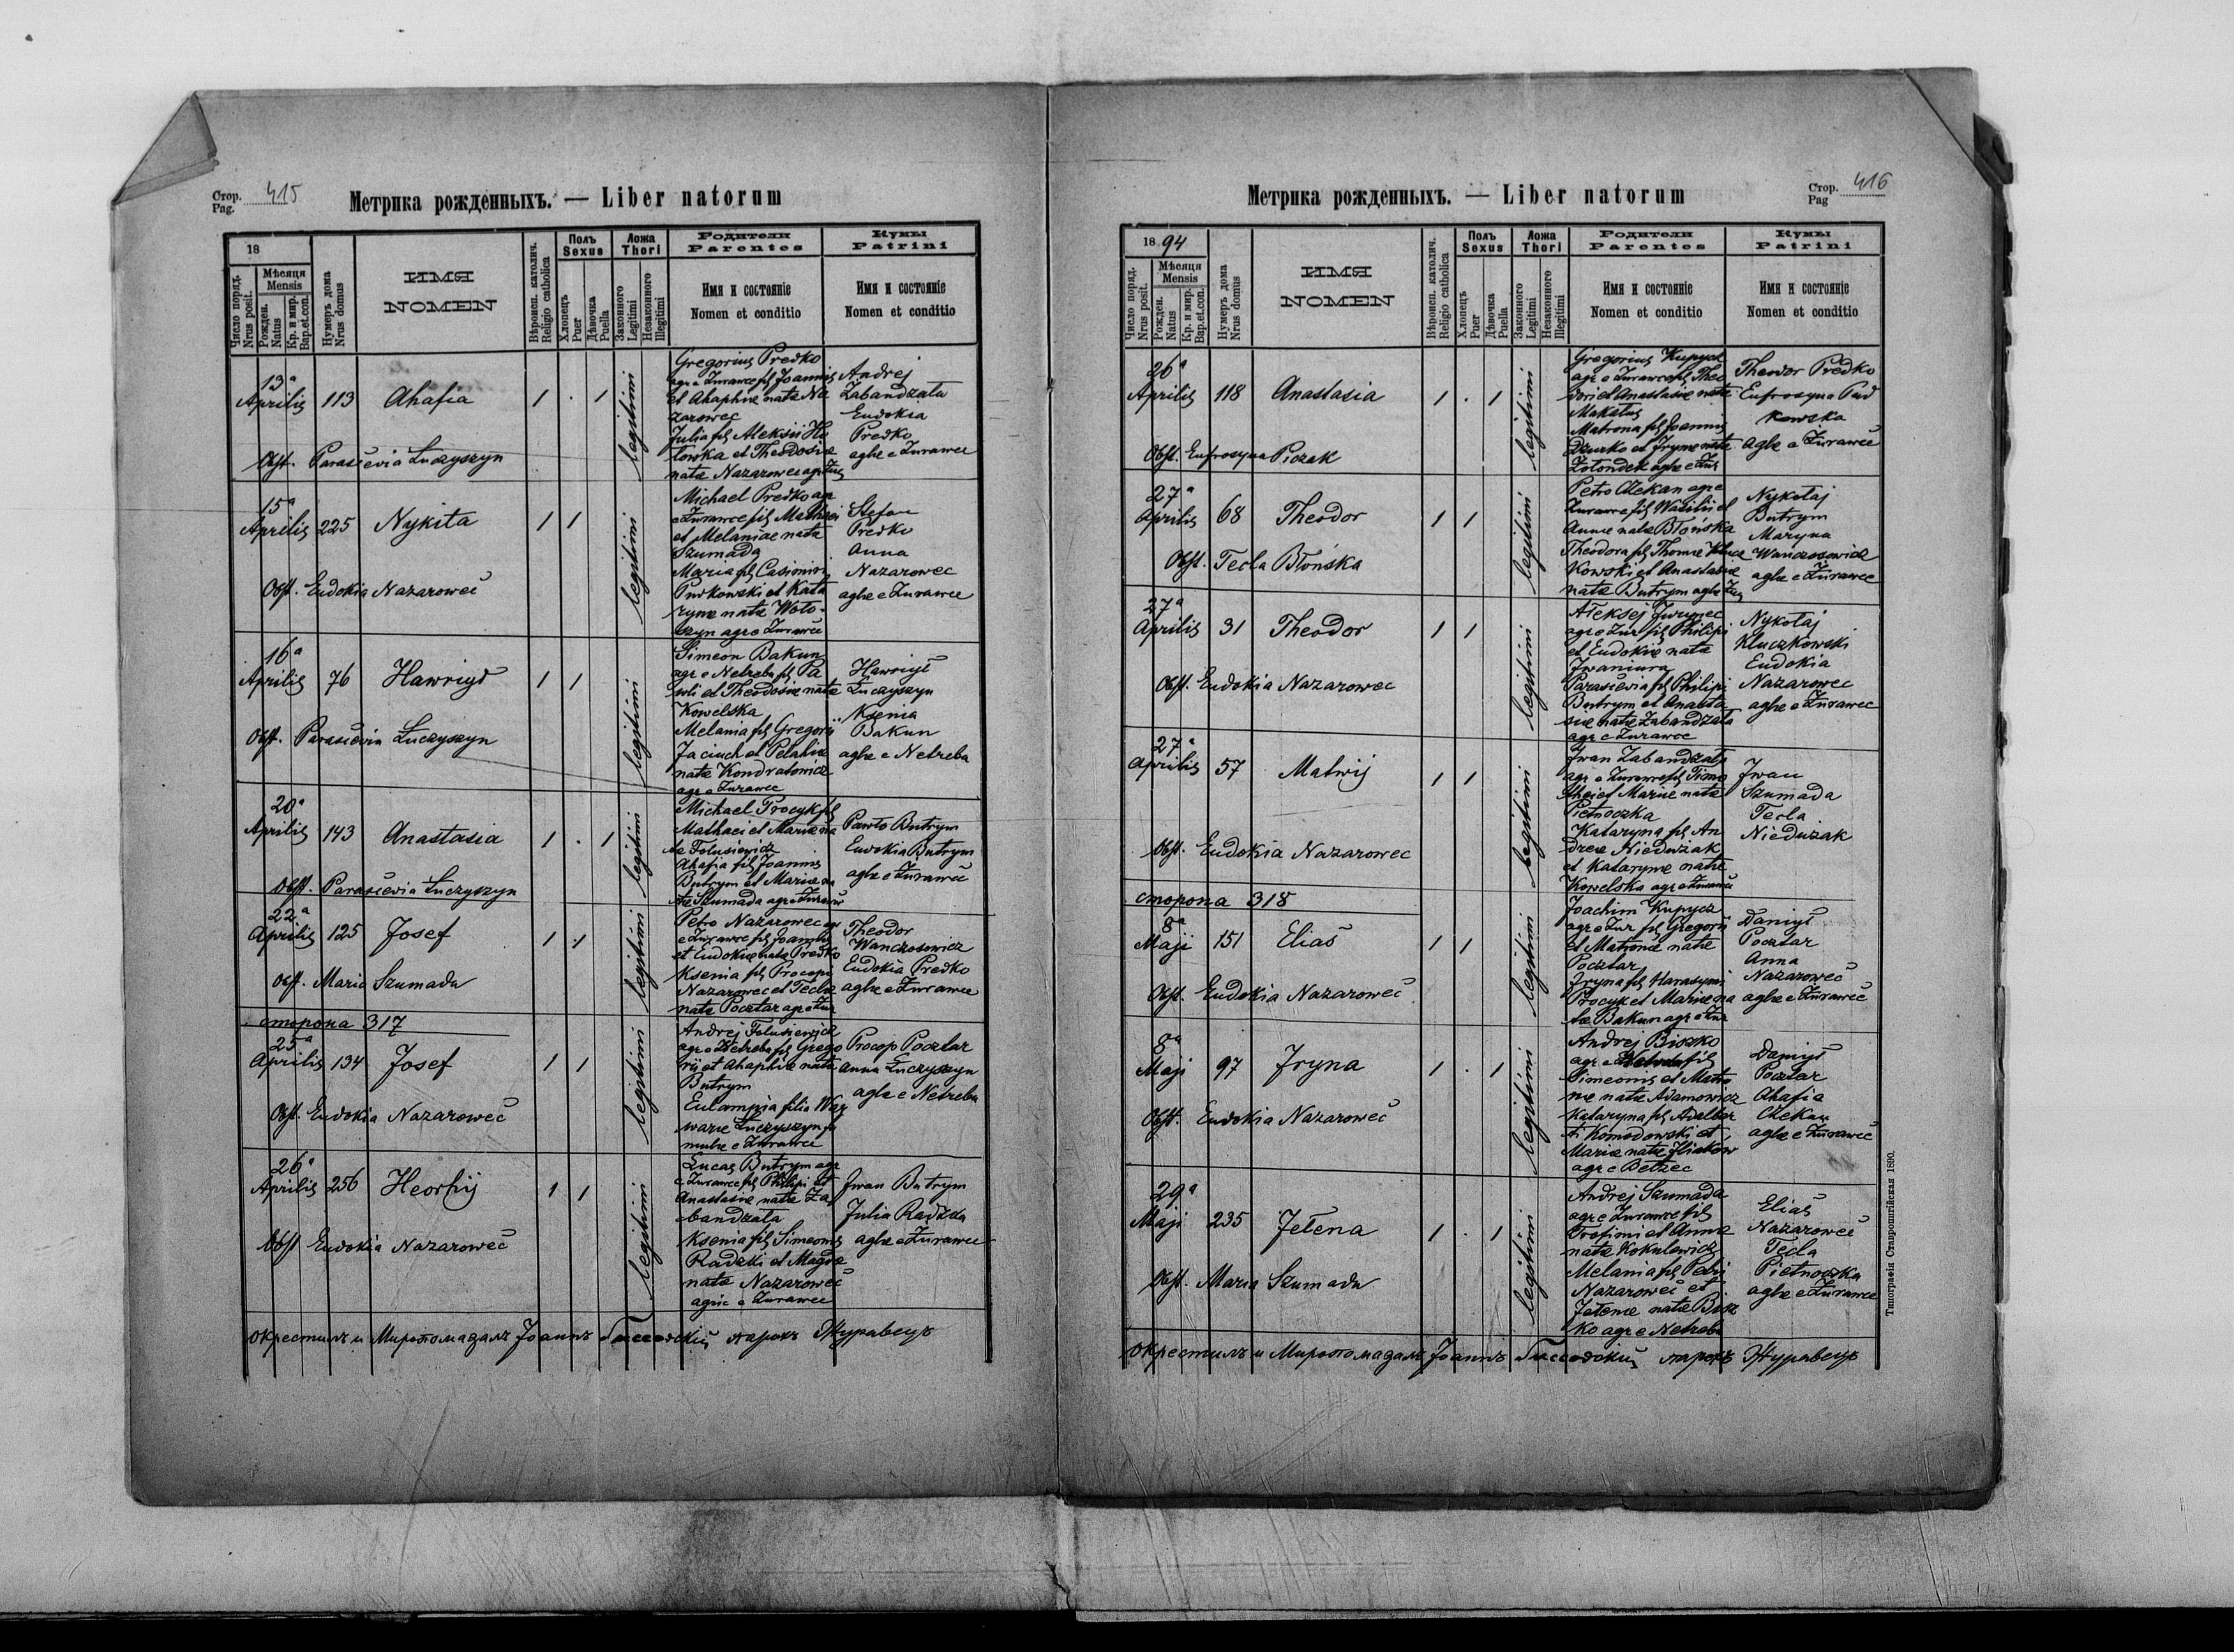 Стор. 415
Pag.
Метрика рожденныхъ. — Liber natorum
18
Число поряд.
Nrus posit.
Мѣсяця
Mensis
Рожден.
Natus
Кр. и мир.
Bap.et.con.
Нумеръ дома
Nrus domus
ИМЯ
NOMEN
Вѣроисп. католич.
Religio catholica
Полъ
Sexus
Хлопецъ
Puer
Дѣвочка
Puella
Ложа
Thori
Законного
Legitimi
Незаконного
Illegitimi
Родители
Parentes
Имя и состояніе
Nomen et conditio
Кумы
Patrini
Имя и состояніе
Nomen et conditio
13ª
Aprilis 113 Ahafia 1 . 1 legitimi
Obst. Parascevia Łuczyszyn
Gregorius Predko
agr e Żurawce fil Joannis
et Ahaphiæ natæ Na
zarowec
Julia fil Aleksii Ho
łowka et Theodosiæ
natæ Nazarowec
Andrej
Zabandżała
Eudokia
Predko
aglæ e Żurawce
15ª
Aprilis 225 Nykita 1 1 legitimi
Obst. Eudokia Nazarowec
Michael Predko agr
e Żurawce fil Mathæi
et Melaniæ natæ
Szumada
Maria fil Casimiri
Purkowski et Kata
rynæ natæ Woło-
szyn agr e Żurawce
Stefan
Predko
Anna
Nazarowec
aglæ e Żurawce
16ª
Aprilis 76 Hawriył 1 1 legitimi
Obst. Parascevia Łuczyszyn
Simeon Bakun
agr e Netreba fil Pa
uli et Theodosiæ natæ
Kowelska
Melania fil Gregorii
Jaciuch et Pelahiæ
natæ Kondratowicz
agr e Żurawce
Hawriył
Łuczyszyn
Ksenia
Bakun
aglæ e Netreba
20ª
Aprilis 143 Anastasia 1 . 1 legitimi
Obst. Parascevia Łuczyszyn
Michael Procyk fil
Mathæi et Mariæ na
tæ Folusiewicz
Ahafia fil Joannis
Butrym et Mariæ na
tæ Szumada agr e Żurawce
Pawło Butrym
Eudokia Butrym
aglæ e Żurawce
22ª
Aprilis 125 Josef 1 1 legitimi
Obst. Maria Szumada
Petro Nazarowec agr
e Żurawce fil Joannis
et Eudokiæ natæ Predko
Ksenia fil Procopii
Nazarowec et Teclæ
natæ Pocztar agr e Żur
Theodor
Wanczosowicz
Eudokia Predko
aglæ e Żurawce
сторона 317
25ª
Aprilis 134 Josef 1 1 legitimi
Obst. Eudokia Nazarowec
Andrej Folusiewicz
agr e Netreba fil Grego
rii et Ahaphiæ natæ
Butrym
Eulampia filia War
waræ Łuczyszyn fa
mulæ e Żurawce
Procop Pocztar
Anna Łuczyszyn
aglæ e Netreba
26ª
Aprilis 256 Heorhij 1 1 legitimi
Obst Eudokia Nazarowec
Lucas Butrym agr
e Żurawce fil Philipi et
Anastasiæ natæ Za
bandżała
Ksenia fil Simeonis
Radzki et Magdæ
natæ Nazarowec
agric e Żurawce
Iwan Butrym
Julia Radzka
aglæ e Żurawce
окрестилъ и Мѵропомазалъ Іоаннъ парохъ Журавецъ
Метрика рожденныхъ. — Liber natorum
Стор. 416
Pag
1894
Число поряд.
Nrus posit.
Мѣсяця
Mensis
Рожден.
Natus
Кр. и мир.
Bap.et.con.
Нумеръ дома
Nrus domus
ИМЯ
NOMEN
Вѣроисп. католич.
Religio catholica
Полъ
Sexus
Хлопецъ
Puer
Дѣвочка
Puella
Ложа
Thori
Законного
Legitimi
Незаконного
Illegitimi
Родители
Parentes
Имя и состояніе
Nomen et conditio
Кумы
Patrini
Имя и состояніе
Nomen et conditio
26ª
Aprilis 118 Anastasia 1 . 1 legitimi
Obst. Eufrosyna Piczak
Gregorius Kupycz
agr e Żurawce fil Theo
dori et Anastasiæ natæ
Makalus
Matrona fil Joannis
Dziurko et Irynæ natæ
Żołondek aglæ e Żur
Theodor Predko
Eufrosyna Pud
kowska
aglæ e Żurawce
27ª
Aprilis 68 Theodor 1 1 legitimi
Obst. Tecla Błońska
Petro Czekan agr e
Żurawce fil Wasilii et
Annæ natæ Błońska
Theodora fil Thomæ Klucz
kowski et Anastasiæ
natæ Butrym aglæ Żur
Nykołaj
Butrym
Maryna
Wanczosowicz
aglæ e Żurawce
27ª
Aprilis 31 Theodor 1 1 legitimi
Obst. Eudokia Nazarowec
Ałeksej Jurynec
agr e Żur fil Philipi
et Eudokiæ natæ
Iwaniura
Parascevia fil Philipi
Butrym et Anasta
siæ natæ Zabandżała
agr e Żurawce
Nykołaj
Kluczkowski
Eudokia
Nazarowec
aglæ e Żurawce
27ª
Aprilis 57 Matwij 1 1 legitimi
Obst. Eudokia Nazarowec
Iwan Zabandżała
agr e Żurawce fil Timo
thei et Mariæ natæ
Pietnoczka
Kataryna fil An
dreæ Niedużak
et Katarynæ natæ
Kowelska agr e Żurawce
Iwan
Szumada
Tecla
Niedużak
сторона 318
8ª
Maji 151 Eliaš 1 1 legitimi
Obst. Eudokia Nazarowec
Joachim Kupycz
agr e Żur fil Gregorii
et Matronæ natæ
Pocztar
Iryna fil Harasymi
Procyk et Mariæ na
tæ Bakun agr e Żur
Daniył
Pocztar
Anna
Nazarowec
aglæ e Żurawce
8ª
Maji 97 Iryna 1 . 1 legitimi
Obst. Eudokia Nazarowec
Andrej Biszko
agr e Netreba fil
Simeonis et Matro
næ natæ Adamowicz
Kataryna fil Adalber
ti Komodowski et
Mariæ natæ
agr e Bełzec
Daniył
Pocztar
Ahafia
Czekan
aglæ e Żurawce
29ª
Maji 235 Jełena 1 . 1 legitimi
Obst. Maria Szumada
Andrej Szumada
agr e Żurawce fil
Trofimi et Annæ
natæ Kokulewicz
Melania fil Petri
Nazarowec et
Jełenæ natæ Bisz
ko agr e Netreba
Eliaš
Nazarowec
Tecla
Pietnoczka
aglæ e Żurawce
окрестилъ и Мѵропомазалъ Іоаннъ парохъ Журавецъ
Типографія Ставропигійская 1890.